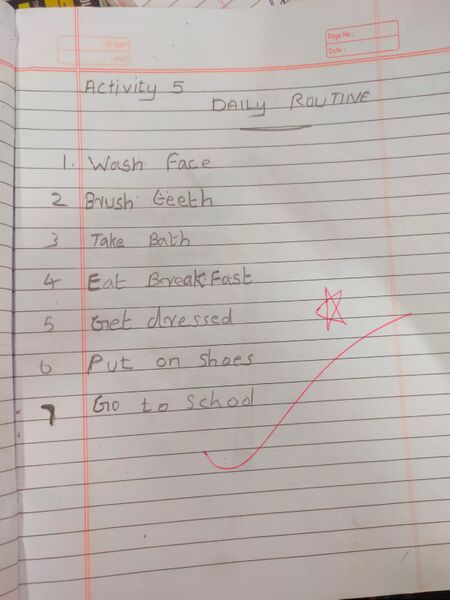 Page No :
Date :
Activity 5
DAILY ROUTINE
1. Wash Face
2 Brush teeth
3 Take Bath
4 Eat Break Fast
5 Get dressed
6 Put on Shoes
7 Go to School